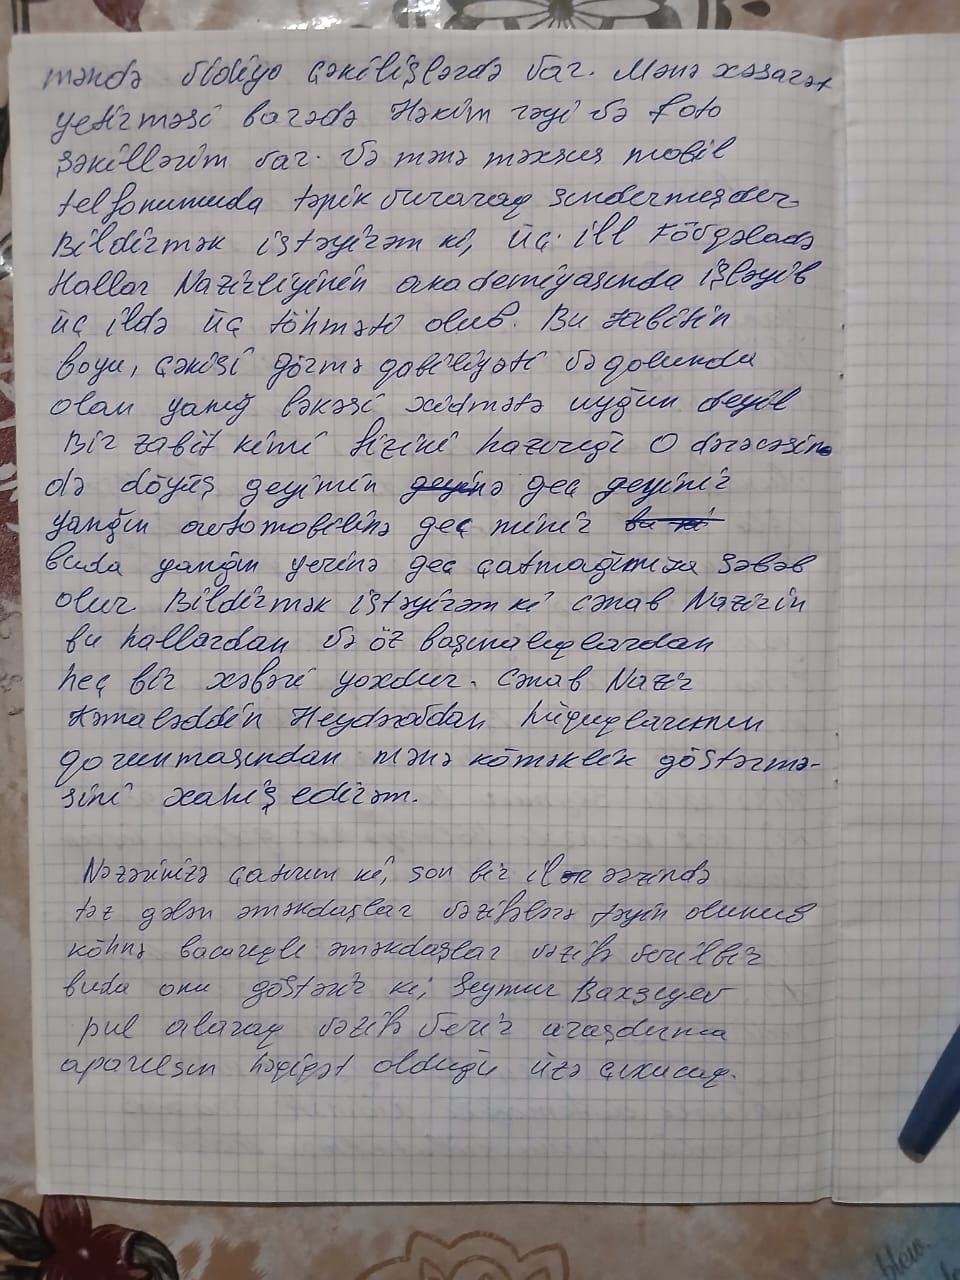 məndə vidiyo çəkilişlərdə var. Mənə xəsarət
yetirməsi barədə Həkim rəyi və foto
şəkillərim var. Və mənə məxsus mobil
telfonumuda təpik vuraraq sındırmışdır.
Bildirmək istəyirəm ki, üç ill Fövqəladə
Hallar Nazirliyinin akademiyasında işləyib
üç ildə üç töhməti olub. Bu zabitin
boyu, çəkisi görmə qabiliyəti və qolunda
olan yanığ ləkəsi xidmətə uyğun deyil
Bir zabit kimi fiziki hazırlığı 0 dərəcəsin
də döyüş geyimin geyinə gec geyinir
yanğın avtomobilinə gec minir
buda yanğın yerinə gec çatmağımıza səbəb
olur. Bildirmək istəyirəm ki cənab Nazirin
bu hallardan və öz başınalıqlardan
heç bir xəbəri yoxdur. Cənab Nazir
Kəmaləddin Heydərovdan hüquqlarımın
qorunmasından mənə köməklik göstərmə-
sini xahiş edirəm.
Nəzərinizə çatırım ki, son bir il ərzində
təz gələn əməkdaşlar vəzifələrə təyin olunub
köhnə bacarıqlı əməkdaşlar vəzifə verilbir
buda onu göstərir ki, Seymur Baxşıyev
pul alaraq vəzifə verir araşdırma
aparılsın həqiqət olduğu üzə çıxacaq.